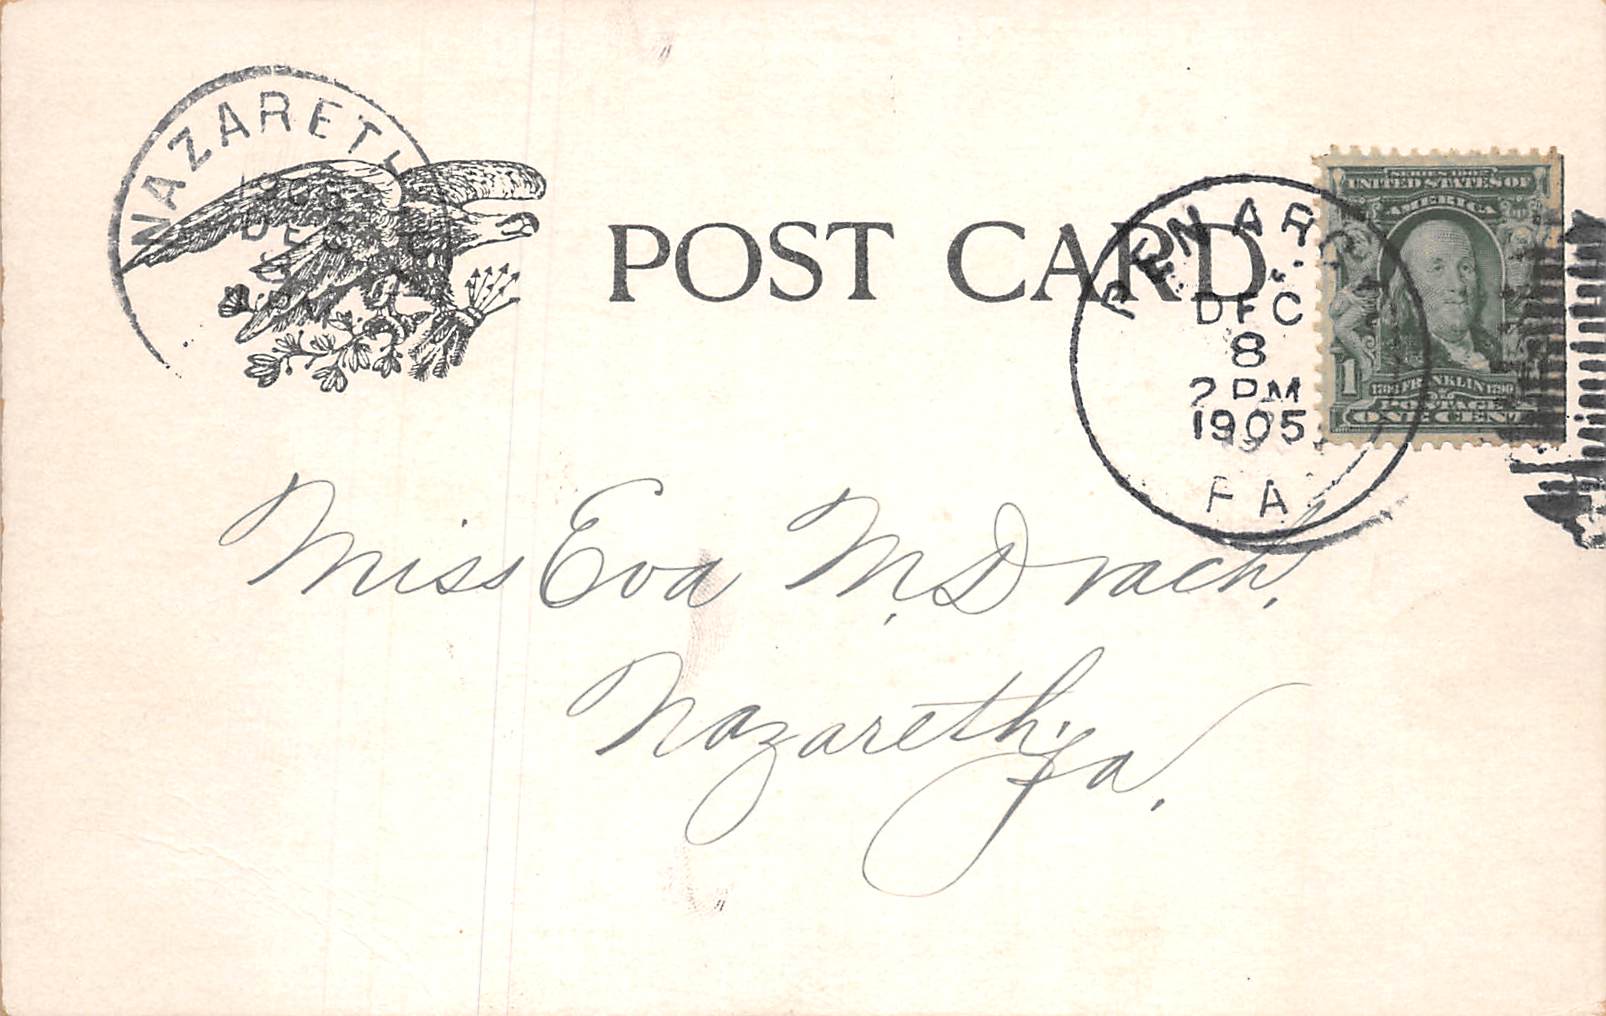 NAZARETH
POST CARD
PEN ARGYL
DEC
8
2 PM
1905
PA
SERIES 1902
UNITED STATES OF
AMERICA
1
FRANKLIN
POSTAGE
ONE CENT
Miss Eva M. Drach,
Nazareth,
Pa,